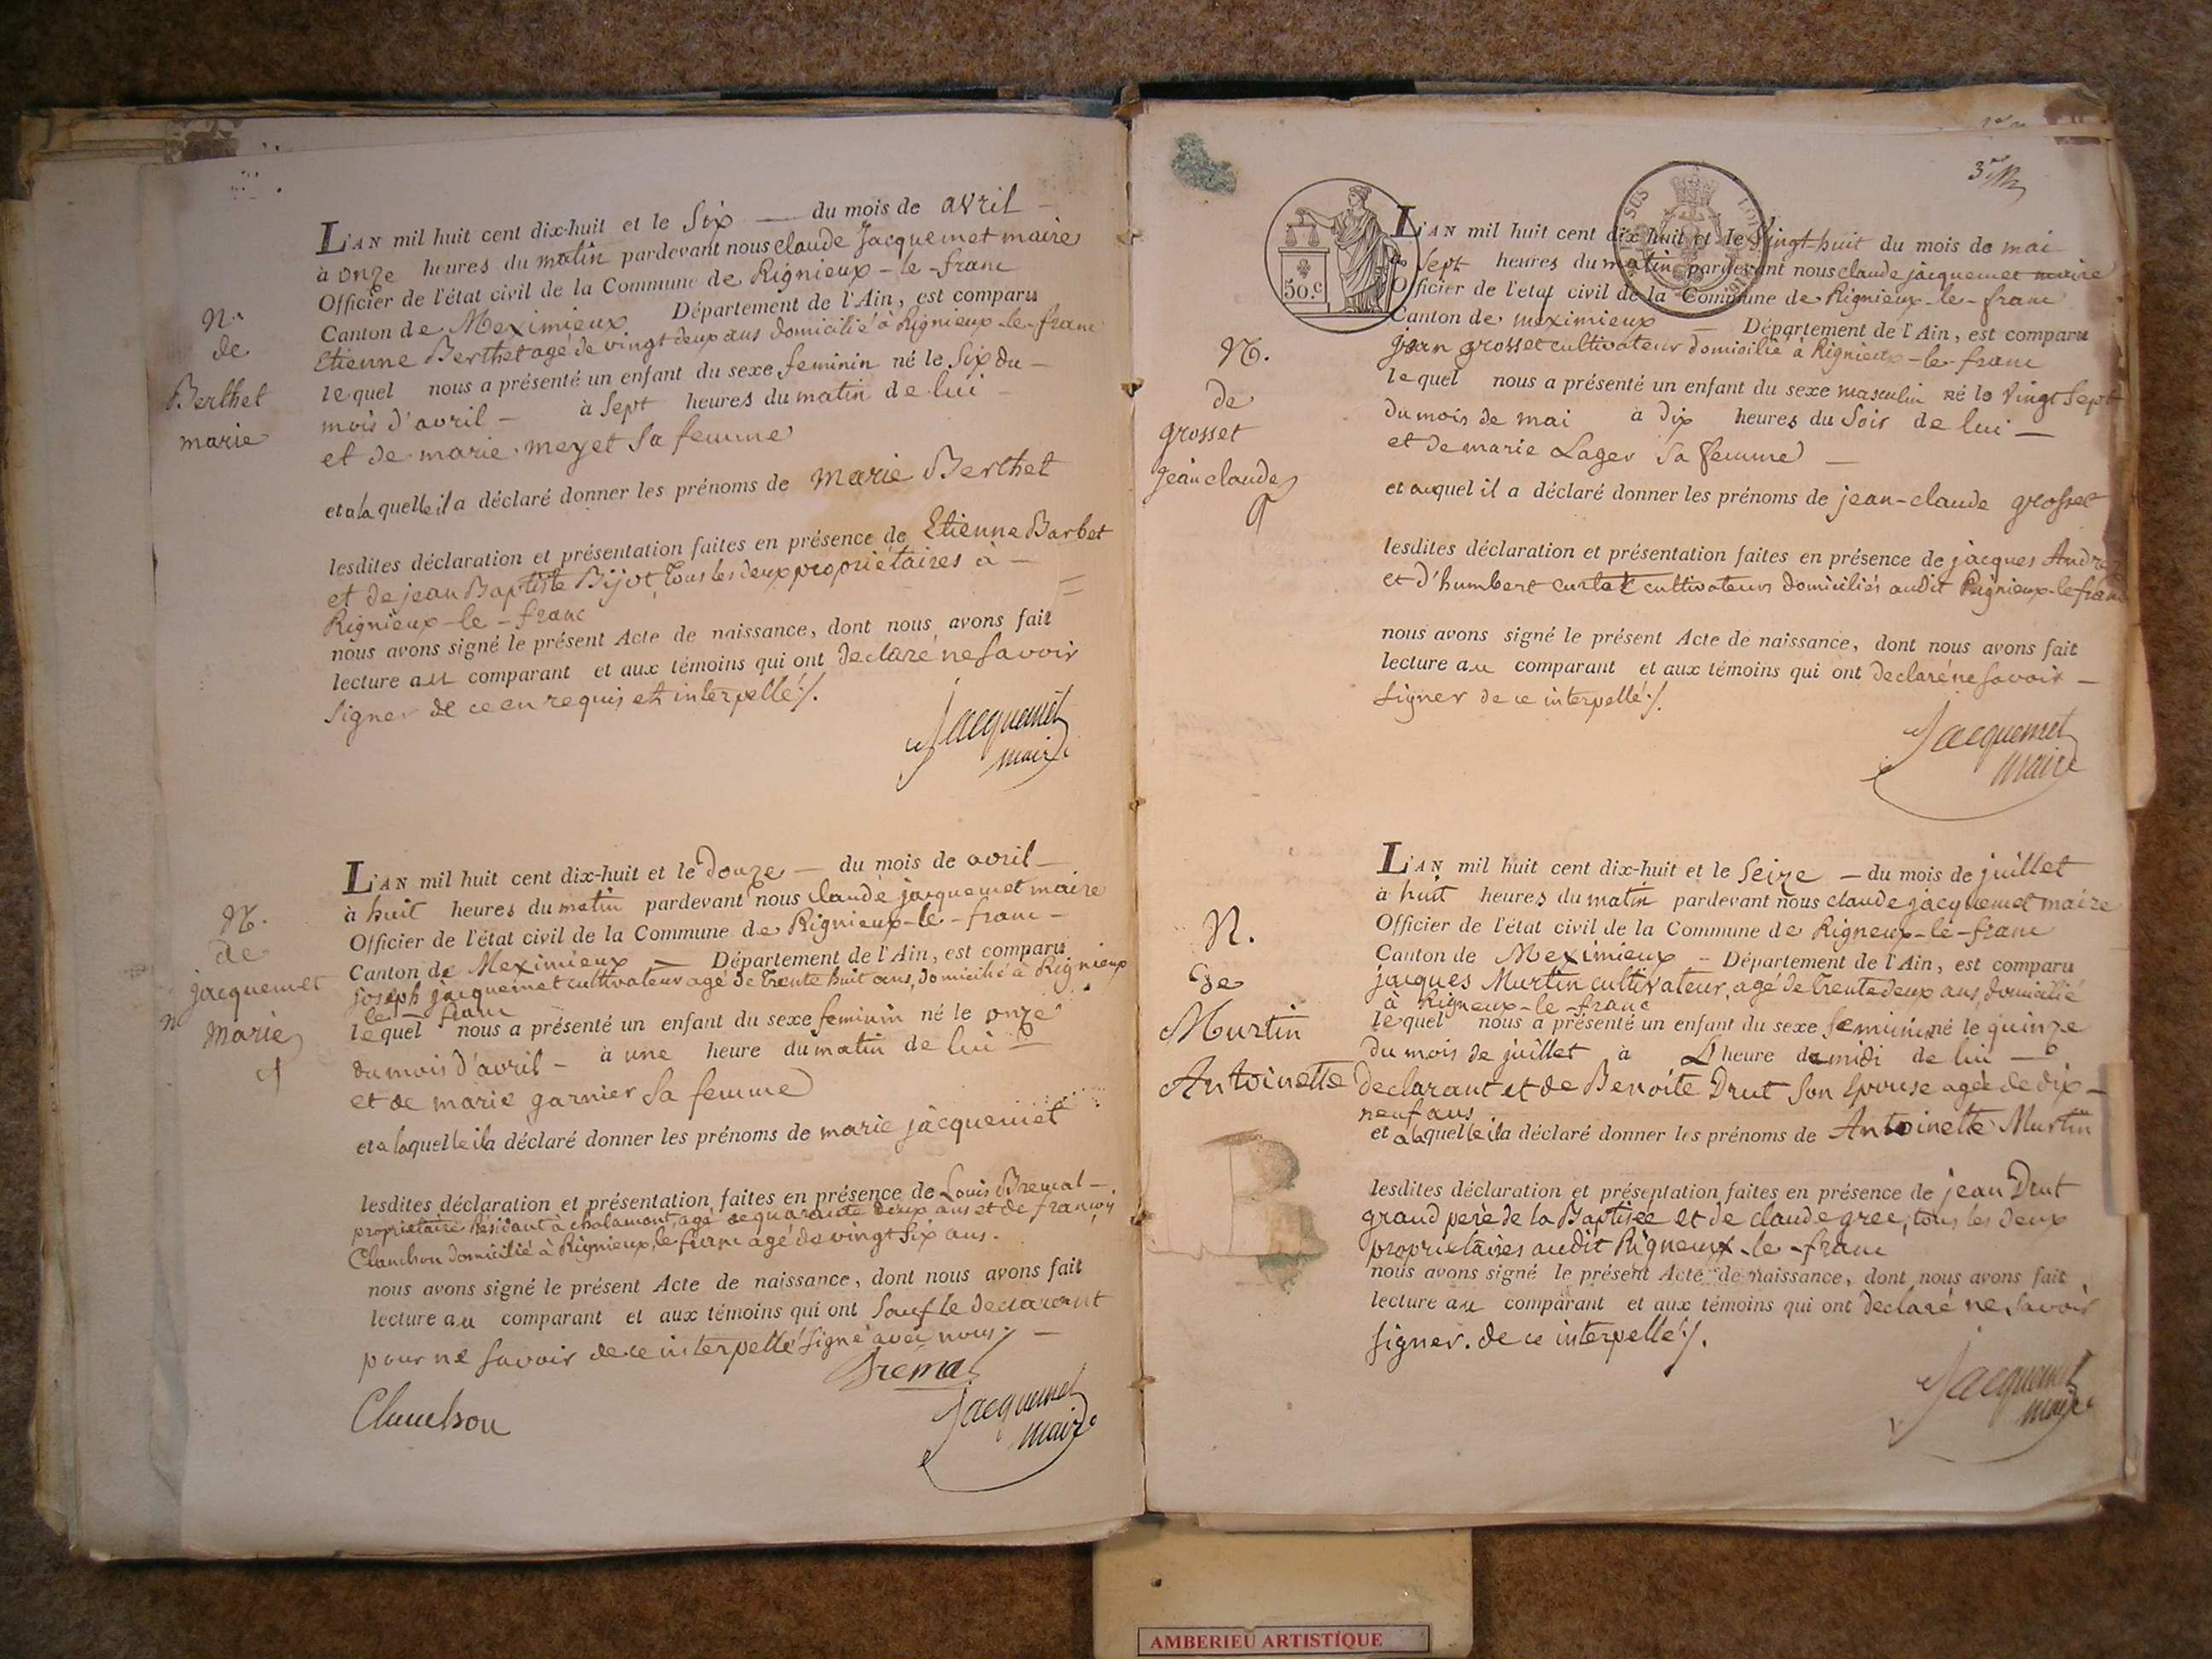 L'AN mil huit cent dix-huit et le Six — du mois de avril —
à onze heures du matin pardevant nous claude Jacquemet maire
Officier de l'état civil de la Commune de Rignieux-le-franc
Canton de Meximieux Département de l'Ain, est comparu
Etienne Berthet agé de vingt deux ans domicilié à Rignieux-le-franc
lequel nous a présenté un enfant du sexe feminin né le Six du —
mois d'avril — à Sept heures du matin de lui —
et de marie meyet Sa femme
et a laquelle il a déclaré donner les prénoms de Marie Berthet
lesdites déclaration et présentation faites en présence de Etienne Barbet
et de jean Baptiste Bijot, tous les deux proprietaires à —
Rignieux-le-franc
nous avons signé le présent Acte de naissance, dont nous avons fait
lecture au comparant et aux témoins qui ont declaré ne Savoir
Signer de ce en requis et interpellé ./.
Jacquemet
maire
N.
de
Berthet
marie
L'AN mil huit cent dix-huit et le Douze — du mois de avril —
à huit heures du matin pardevant nous claude jacquemet maire
Officier de l'état civil de la Commune de Rignieux-le-franc —
Canton de Meximieux — Département de l'Ain, est comparu
joseph jacquemet cultivateur agé de trente huit ans, domicilié à Rignieux
le-franc
lequel nous a présenté un enfant du sexe feminin né le onze
du mois d'avril — à une heure du matin de lui —
et de marie garnier Sa femme
et a laquelle il a déclaré donner les prénoms de marie jacquemet
lesdites déclaration et présentation faites en présence de Louis Bremal —
proprietaire Residant à chalamont, agé de quarante deux ans et de françois
Clanchon domicilié à Rignieux le franc agé de vingt Six ans.
nous avons signé le présent Acte de naissance, dont nous avons fait
lecture au comparant et aux témoins qui ont Sauf le declarant
pour ne Savoir de ce interpellé Signé avec nous ./. —
Bremal
Clanchon
Jacquemet
maire
N.
de
jacquemet
Marie
3
50.c
L'AN mil huit cent dix huit et le Vingt-huit du mois de mai
à Sept heures du matin pardevant nous claude jacquemet maire
Officier de l'état civil de la Commune de Rignieux-le-franc
Canton de meximieux — Département de l'Ain, est comparu
jean grosset cultivateur domicilié à Rignieux-le-franc
lequel nous a présenté un enfant du sexe masculin né le Vingt Sept
du mois de mai à Dix heures du Soir de lui —
et de marie Lager Sa femme —
et auquel il a déclaré donner les prénoms de jean-claude grosset
lesdites déclaration et présentation faites en présence de jacques
et d'humbert cultivateurs domiciliés audit Rignieux-le-franc
nous avons signé le présent Acte de naissance, dont nous avons fait
lecture au comparant et aux témoins qui ont declaré ne Savoir —
Signer de ce interpellé ./.
Jacquemet
maire
N.
de
grosset
jean claude
L'AN mil huit cent dix-huit et le Seize — du mois de juillet
à huit heures du matin pardevant nous claude jacquemet maire
Officier de l'état civil de la Commune de Rigneux-le-franc
Canton de Meximieux — Département de l'Ain, est comparu
jacques Murtin cultivateur, agé de trente deux ans, domicilié
à Rigneux-le-franc
lequel nous a présenté un enfant du sexe feminin né le quinze
du mois de juillet à L'heure de midi de lui —
declarant et de Benoite Drut Son epouse agée de dix —
neuf ans
et a laquelle il a déclaré donner les prénoms de Antoinette Murtin
lesdites déclaration et présentation faites en présence de jean Drut
grand père de la Baptisée et de claude gree, tous les deux
proprietaires audit Rigneux-le-franc
nous avons signé le présent Acte de naissance, dont nous avons fait
lecture au comparant et aux témoins qui ont declaré ne Savoir
Signer. de ce interpellé ./.
Jacquemet
maire
N.
de
Murtin
Antoinette
AMBERIEU ARTISTIQUE